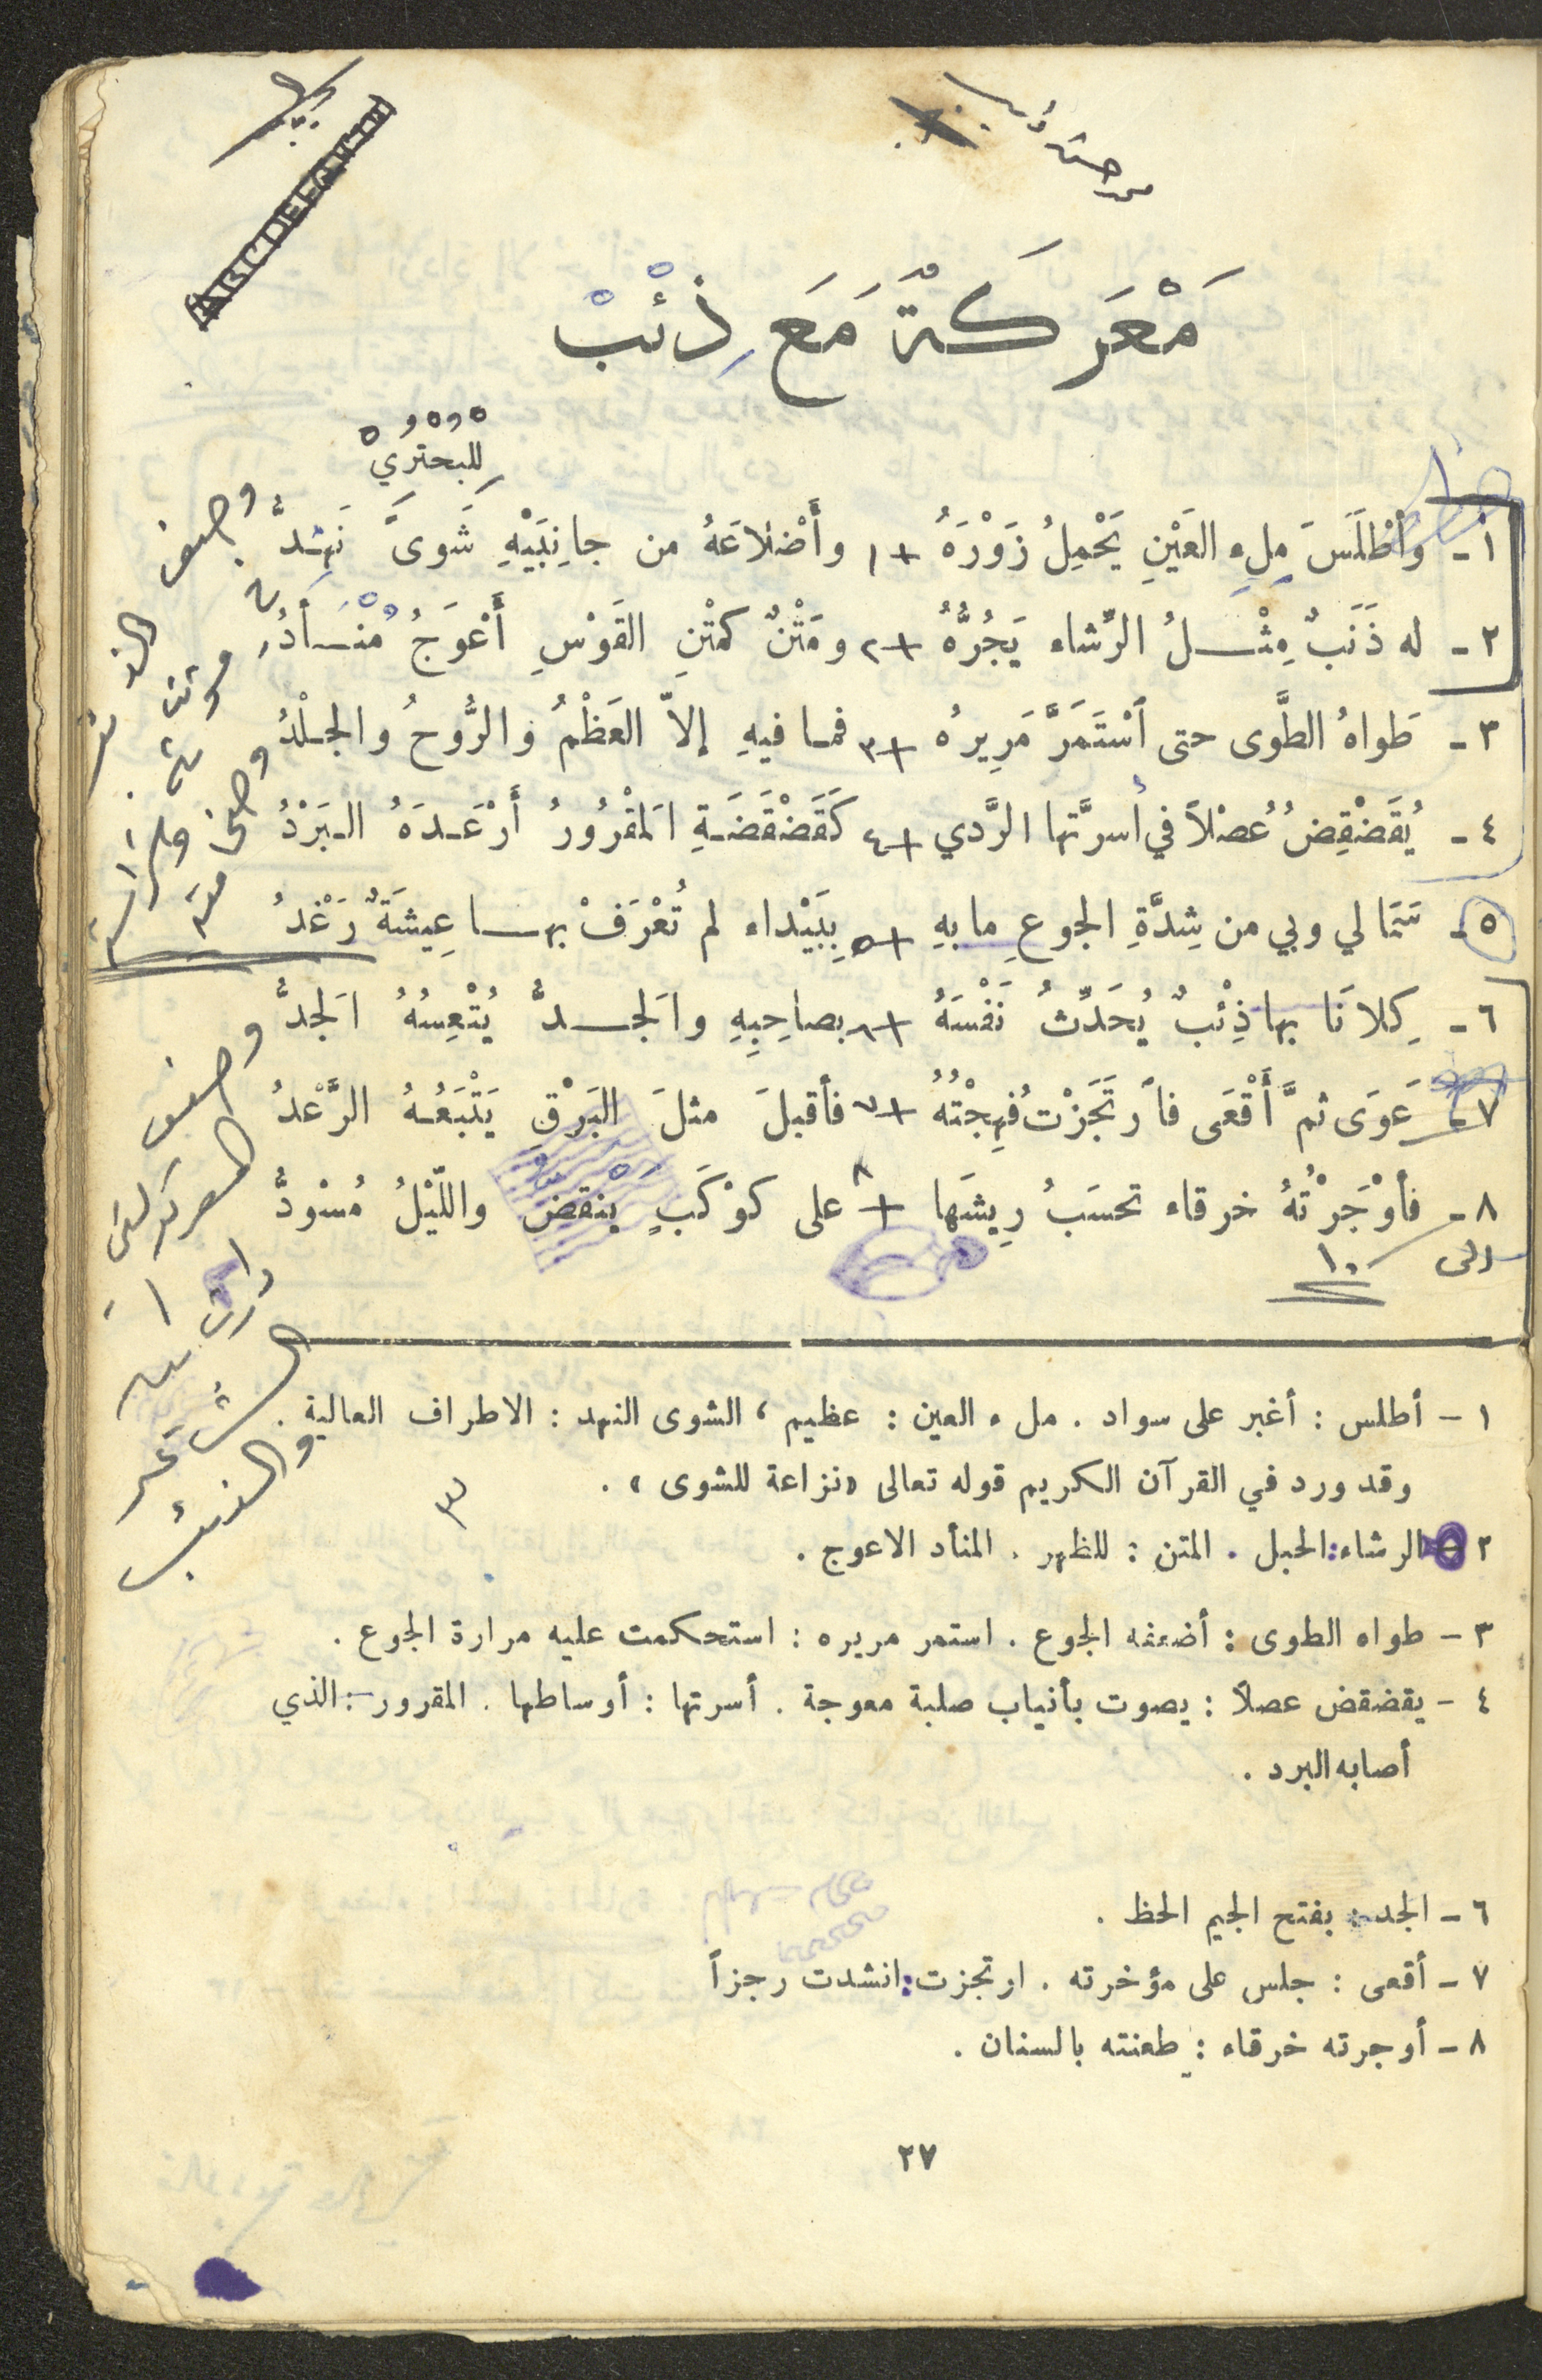 ABCDEFGHIJ
مَعْرَكَةٌ مَعَ ذِئْبْ
للبحتري
١ - وَأَطْلَسَ مِلءِ العَيْنِ يَحْمِلُ زَوْرَهُ + ١ وأَضْلاعَهُ من جانِبَيْهِ شَوىً نَهْدُ
٢ - له ذَنَبٌ مِثْلُ الرِّشاء يَجُرُّهُ + ٢ ومَتْنٌ كمَتْنِ القَوْسِ أَعْوَجُ مُنْأَدُ
٣ - طَواهُ الطَّوى حتى ٱسْتَمَرَّ مَرِيرهُ + ٣ فما فيهِ إلاّ العَظْمُ والرُّوحُ والجلْدُ
٤ - يُقَضْقِضُ عُصْلاً في أسرَّتها الرَّدي + ٤ كَقَضْقَضَةِ المَقْرُورُ أَرْعَدَهُ البَرْدُ
٥ - سَمَا لي وبي من شِدَّةِ الجوعِ ما بهِ + ٥ بِبَيْداء لم تُعْرَفْ بها عِيشَةٌ رَغْدُ
٦ - كِلانَا بها ذِئْبٌ يُحَدِّثُ نَفْسَهُ + ٦ بصاحِبِهِ والجَدُّ يُتْعِسُهُ الجَدُّ
٧ - عَوَى ثمَّ أَقْعَى فٱرتَجَزْتُ فَهِجْتُهُ + ٧ فأقبلَ مثلَ البَرْقِ يَتْبَعُهُ الرَّعْدُ
٨ - فأَوْجَرْتُهُ خرقاء تحسَبُ رِيشَها + ٨ على كوْكَبٍ ينقضُّ واللّيْلُ مُسْوَدُّ
الى ١٠
وصف
المعركة التي
دارت
بين
الشاعر
والذئب
١ - أطلس : أغبر على سواد . ملء العين : عظيم ، الشوى النهد : الاطراف العالية .
وقد ورد في القرآن الكريم قوله تعالى «نزاعة للشوى» .
٢ - الرشاء : الحبل . المتن : للظهر . المنأد الاعوج .
٣ - طواه الطوى : أضعفه الجوع . استمر مريره : استحكمت عليه مرارة الجوع .
٤ - يقضقض عصلاً : يصوت بأنياب صلبة معوجة . أسرتها : أوساطها . المقرور : الذي
أصابه البرد .
٦ - الجد : بفتح الجيم الحظ .
٧ - أقعى : جلس على مؤخرته . ارتجزت : انشدت رجزاً
٨ - أوجرته خرقاء : طعنته بالسنان .
٢٧